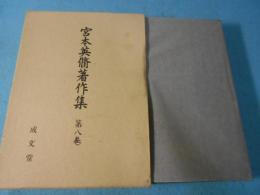 宮本英脩著作集
第八巻
成文堂